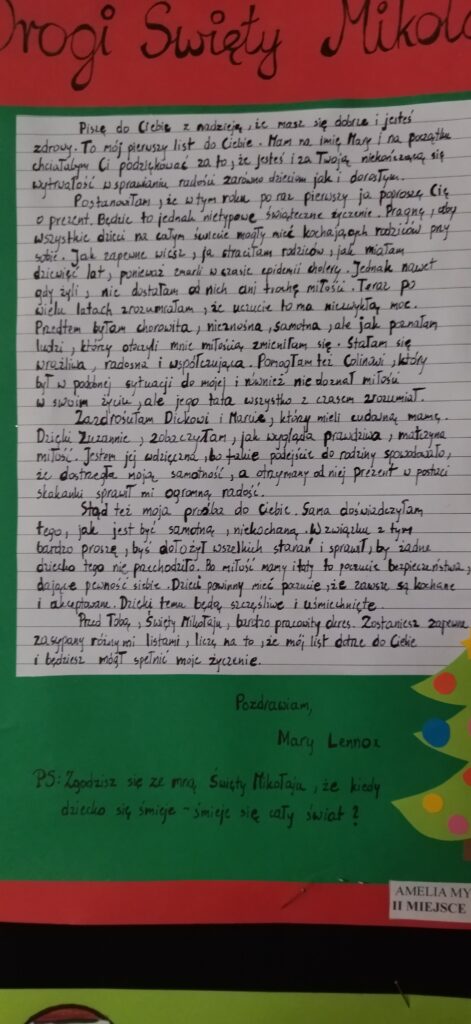 Drogi Święty Mikoła
Piszę do Ciebie z nadzieją, że masz się dobrze i jesteś
zdrowy. To mój pierwszy list do Ciebie. Mam na imię Mary i na początku
chciałabym Ci podziękować za to, że jesteś i za Twoją niekończącą się
wytrwałość w sprawianiu radości zarówno dzieciom jak i dorosłym.
Postanowiłam, że w tym roku po raz pierwszy ja poproszę Cię
o prezent. Będzie to jednak nietypowe świąteczne życzenie. Pragnę, aby
wszystkie dzieci na całym świecie mogły mieć kochających rodziców przy
sobie. Jak zapewne wiesz, ja straciłam rodziców, jak miałam
dziewięć lat, ponieważ zmarli w czasie epidemii cholery. Jednak nawet
gdy żyli, nie dostałam od nich ani trochę miłości. Teraz po
wielu latach zrozumiałam, że uczucie to ma niezwykłą moc.
Przedtem byłam chorowita, nieznośna, samotna, ale jak poznałam
ludzi, którzy otoczyli mnie miłością zmieniłam się. Stałam się
wrażliwa, radosna i współczująca. Pomogłam też Colinowi, który
był w podobnej sytuacji do mojej i również nie doznał miłości
w swoim życiu, ale jego tata wszystko z czasem zrozumiał.
Zazdrościłam Dickowi i Marcie, którzy mieli cudowną mamę.
Dzięki Zuzannie, zobaczyłam, jak wygląda prawdziwa, matczyna
miłość. Jestem jej wdzięczna, bo takie podejście do rodziny spowodowało,
że dostrzegła moją samotność, a otrzymany od niej prezent w postaci
skakanki sprawił mi ogromną radość.
Stąd też moja prośba do Ciebie. Sama doświadczyłam
tego, jak jest być samotną, niekochaną. W związku z tym
bardzo proszę, byś dołożył wszelkich starań i sprawił, by żadne
dziecko tego nie przechodziło. Bo miłość mamy i taty to poczucie bezpieczeństwa,
dające pewność siebie. Dzieci powinny mieć poczucie, że zawsze są kochane
i akceptowane. Dzięki temu będą szczęśliwe i uśmiechnięte.
Przed Tobą, Święty Mikołaju, bardzo pracowity okres. Zostaniesz zapewne
zasypany różnymi listami, liczę na to, że mój list dotrze do Ciebie
i będziesz mógł spełnić moje życzenie.
Pozdrawiam,
Mary Lennox
PS: Zgodzisz się ze mną Święty Mikołaju, że kiedy
dziecko się śmieje - śmieje się cały świat?
AMELIA MY
II MIEJSCE